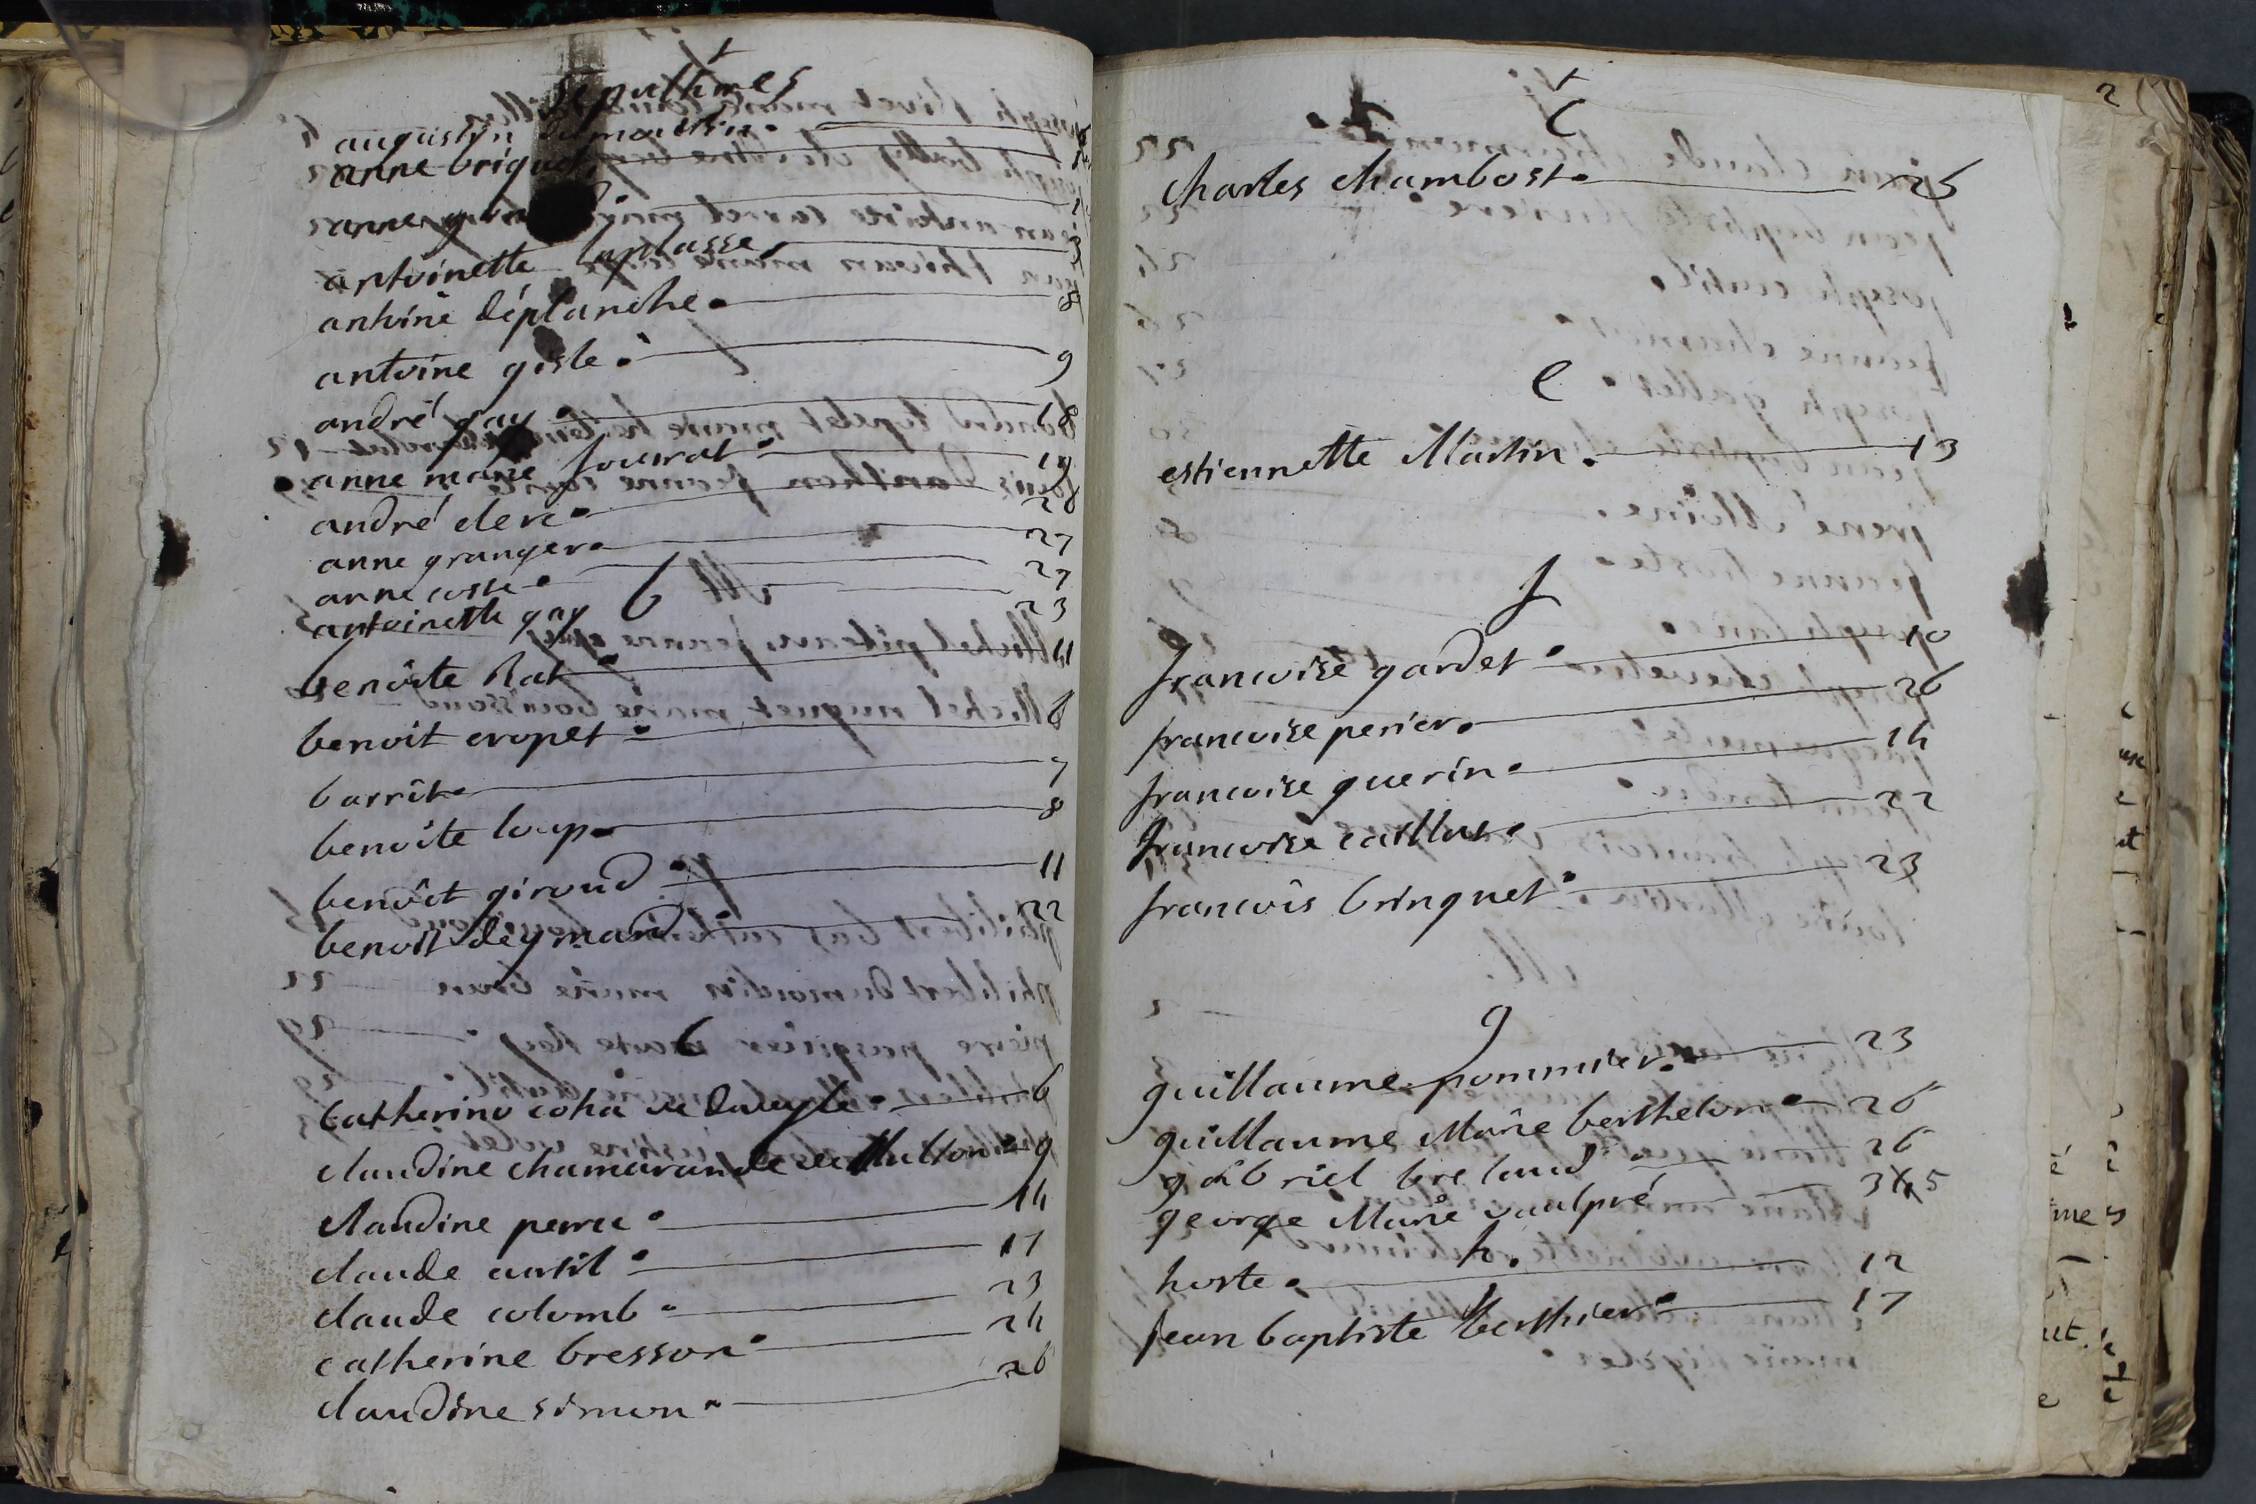 +
sepultures
augustin dumoulin 
anne briquet 1
anne
antoinette laplasse 3
antoine déplanche 8
antoine gisle 9
andré gay 18
anne marie fourrat 19
andré clerc 20
anne granger 27
anne coste 27
antoinette gay 23
b
benoite Rat 11
benoit cropet 6
barrit 7
benoite loup 8
benoit giroud 11
benoit deymard 22
C
Catherine ve 6
claudine chamarande 9
claudine perret 14
claude curtil 17
claude colomb 23
catherine bresson 24
claudine simon 26
2
+
C
charles chambost 25
e
estiennette Martin 13
f
francoise gardet 10
francoise perier 26
francoise guerin 14
francoise caillot 22
francois brinquet 23
g
guillaume pommier 23
guillaume Marie berthelon 26
gabriel breland 26
george Marie vaulpré 5
h
hoste 12
J
jean baptiste berthier 17